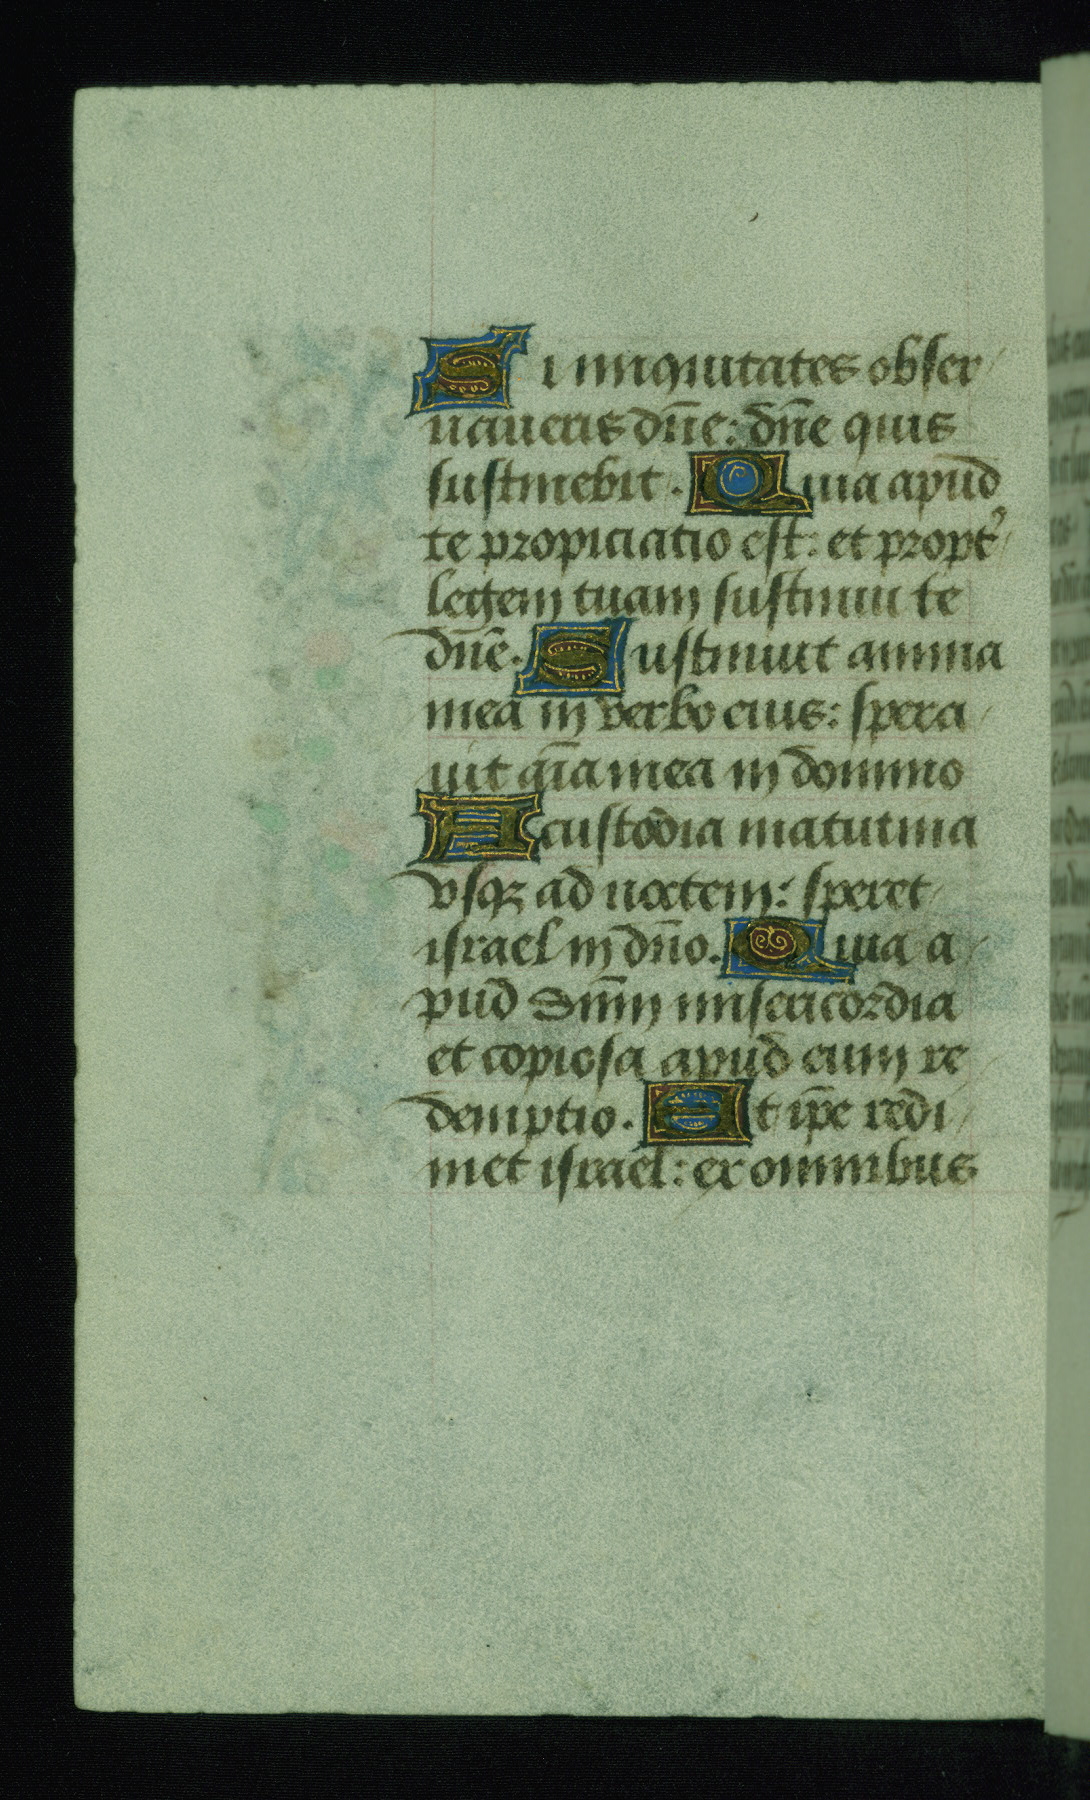 Si iniquitates obser
uaueris dn̄e: dn̄e quis
sustinebit. Quia apud
te propiciatio est: et propt᾽
legem tuam sustinui te
dn̄e. Sustinuit anima
mea in verbo eius: spera
uit aīa mea in domino
A custodia matutina
vsqꝫ ad noctem: speret
israel in dn̄o. Quia a
pud dn̄m misericordia
et copiosa apud eum re
demptio. Et ip̄e redi
met israel: ex omnibus